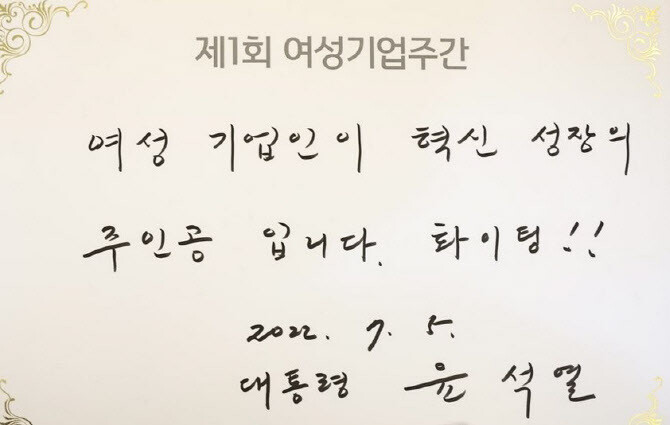 제1회 여성기업주간
여성 기업인이 혁신 성장의
주인공 입니다. 화이팅!!
2022. 7. 5.
대통령 윤석열